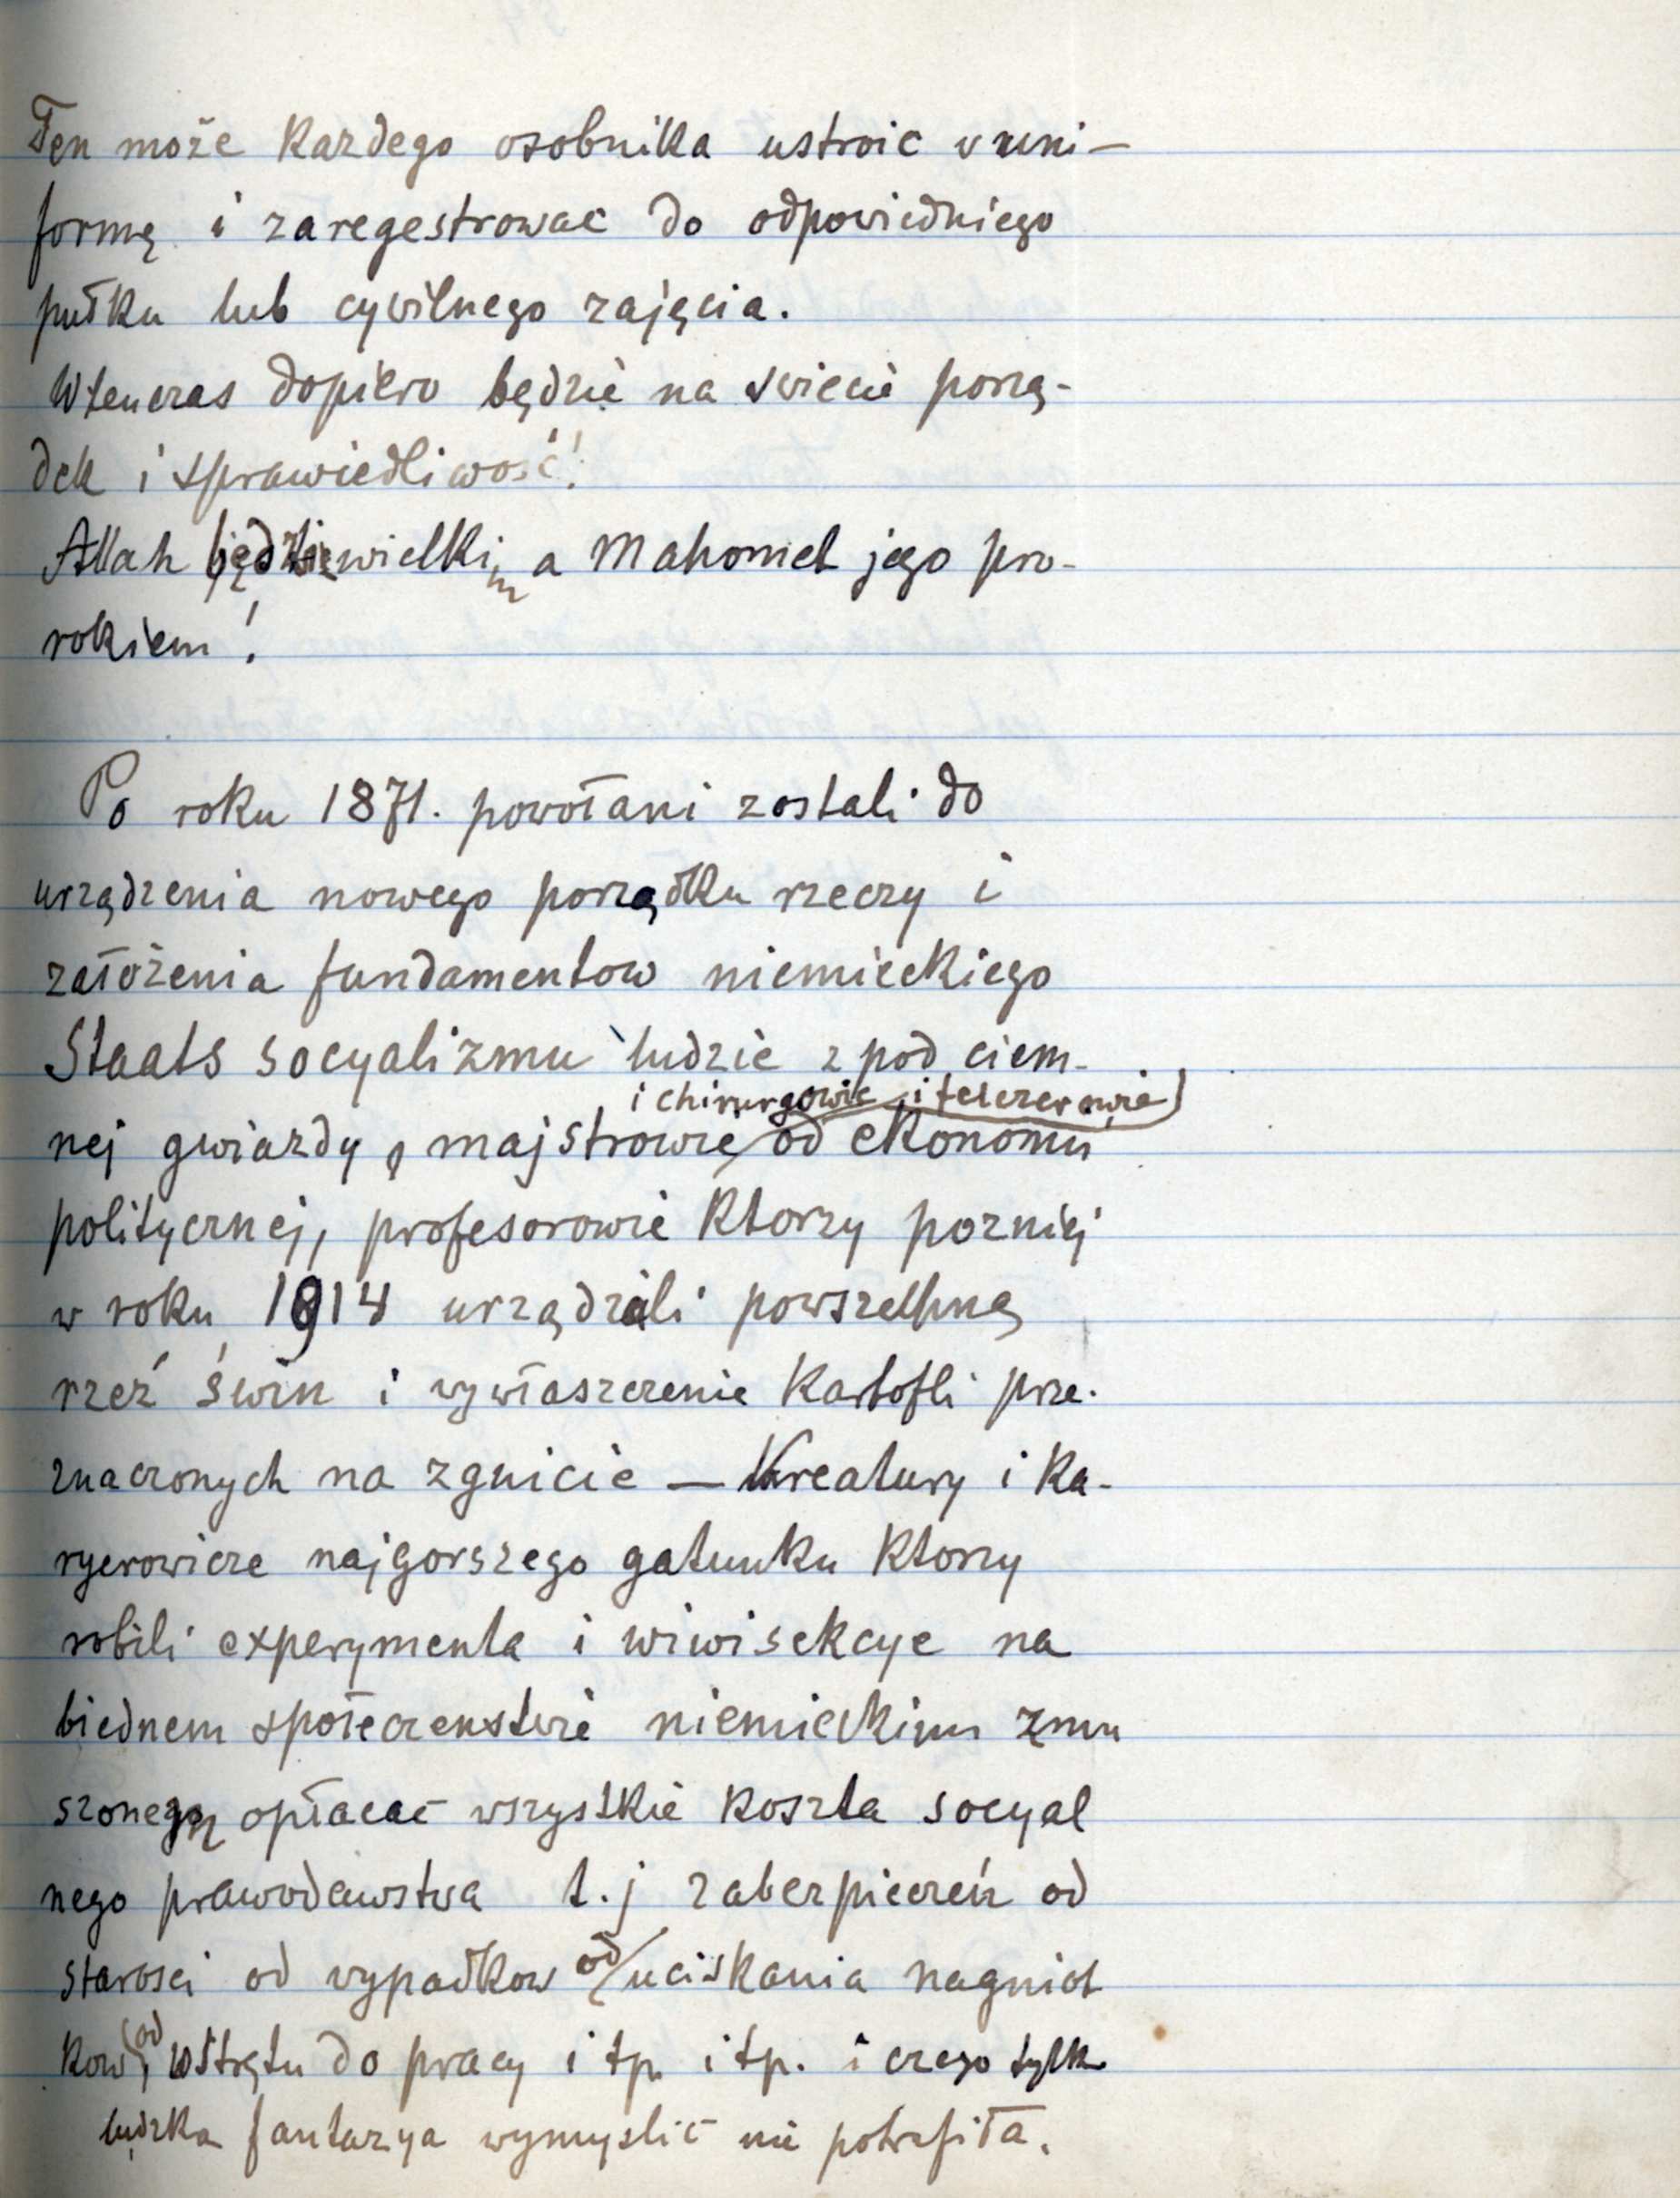 Ten może Kazdego osobnika ustroic w uni-
formę i zaregestrowac do odpowiedniego
pułku lub cywilnego zajęcia.
Wtenczas dopiero będzie na swiecie porzą-
dek i sprawiedliwość!
Allah będzie wielkim a Mahomet jego pro-
rokiem!
Po roku 1871. powołani zostali do
urządzenia nowego porządku rzeczy i
założenia fundamentow niemieckiego
Staats socyalizmu ludzie z pod ciem-
i chirurgowie i felczerowie
nej gwiazdy, majstrowie od ekonomii
politycznej, profesorowie Ktorzy pozniej
w roku 1914 urządzili powszechną
rzeź świn i wywłaszczenie Kartofli prze-
znaczonych na zgnicie — Kreatury i Ka-
ryerowicze najgorszego gatunku Ktorzy
robili experymenta i wiwisekcye na
biednem społeczenstwie niemieckim zmu
szonem opłacać wszystkie Koszta socyal
nego prawodawstwa t.j zabezpieczeń od
starosci od wypadkow od uciskania nagniot
kow, od wstrętu do pracy i tp. i tp. i czego tylko
ludzka fantazya wymyslić nie potrafiła.